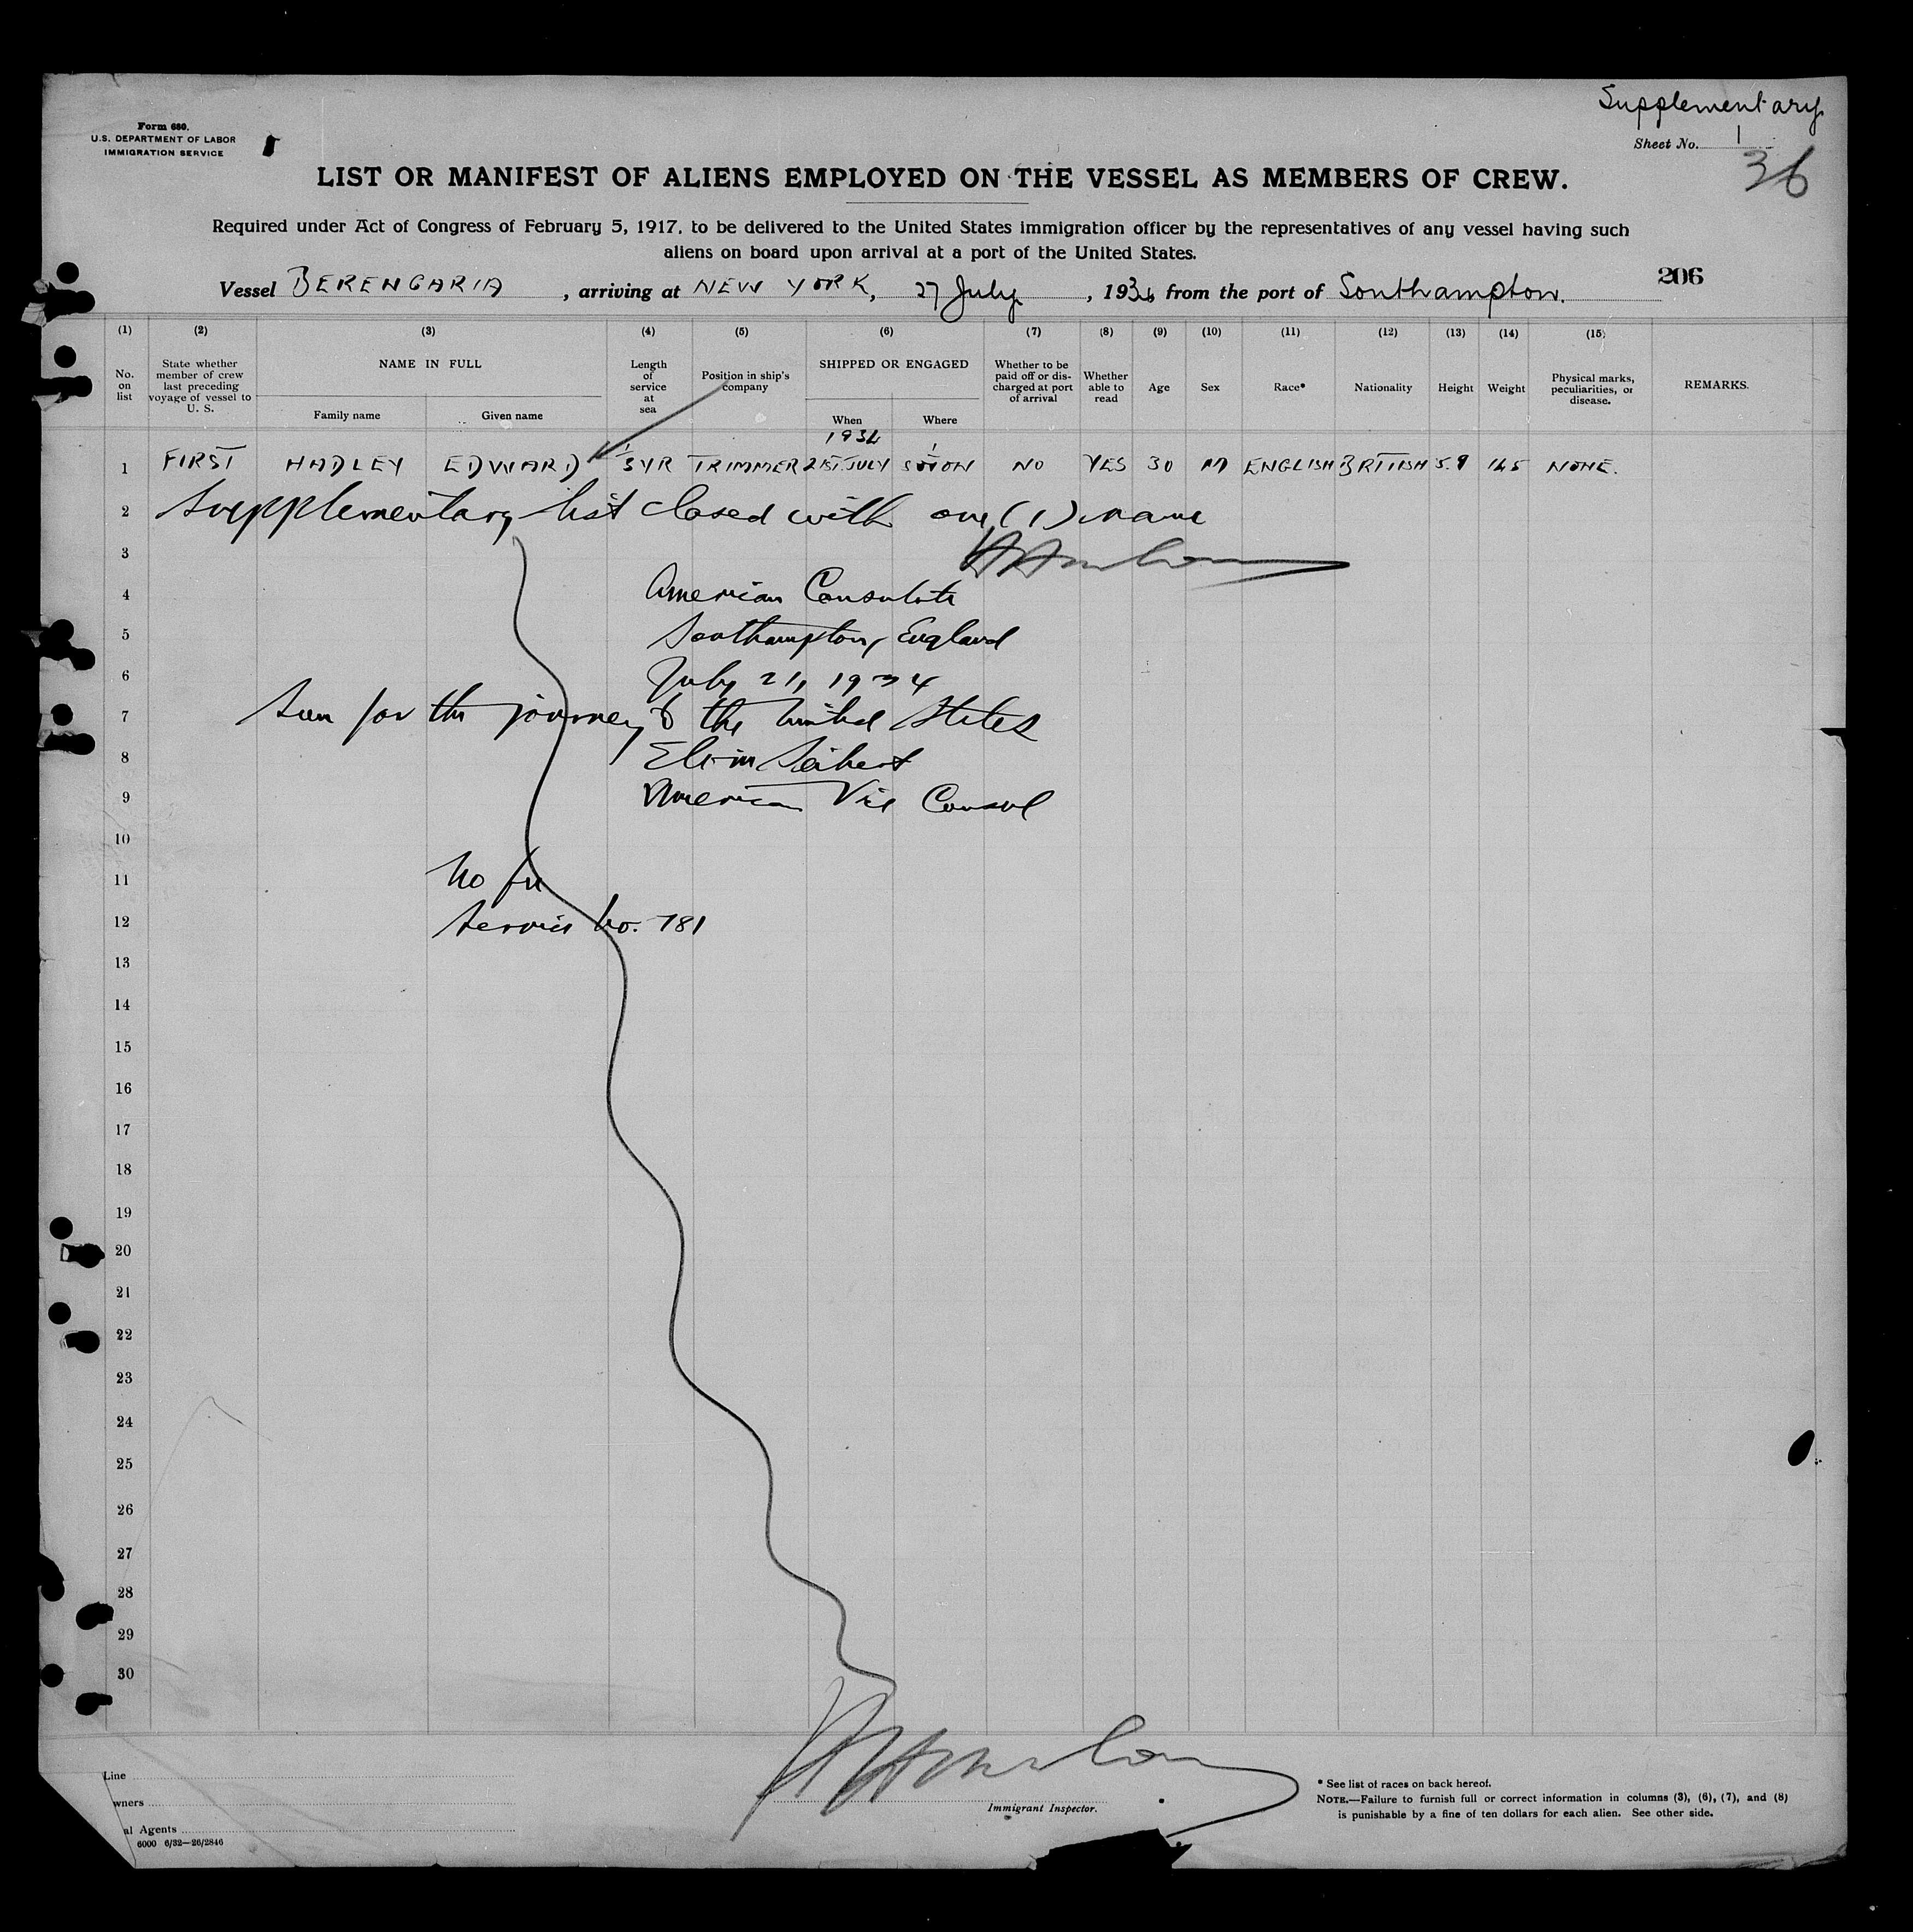 Supplementary
Form 680.
U.S. DEPARTMENT OF LABOR
IMMIGRATION SERVICE
Sheet No. 1
36
LIST OR MANIFEST OF ALIENS EMPLOYED ON THE VESSEL AS MEMBERS OF CREW.
Required under Act of Congress of February 5, 1917, to be delivered to the United States immigration officer by the representatives of any vessel having such
aliens on board upon arrival at a port of the United States.
206
Vessel BERENGARIA, arriving at NEW YORK, 27 July, 1934 from the port of Southampton.
(1) (2) (3) (4) (5) (6) (7) (8) (9) (10) (11) (12) (13) (14) (15)
No. on list
State whether member of crew last preceding voyage of vessel to U. S.
NAME IN FULL
Family name
Given name
Length of service at sea
Position in ship's company
SHIPPED OR ENGAGED
When
Where
Whether to be paid off or discharged at port of arrival
Whether able to read
Age
Sex
Race*
Nationality
Height
Weight
Physical marks, peculiarities, or disease.
REMARKS.
1934
1 FIRST HADLEY EDWARD 3 YR TRIMMER 21ST JULY SOTON NO YES 30 M ENGLISH BRITISH 5.9 145 NONE.
2 Supplementary list closed with one (1) name
3
4 American Consulate
5 Southampton, England
6 July 21, 1934
7 Seen for the journey to the United States
8 Seibert
9 American Vice Consul
10
11 No fee
12 Service No. 781
13
14
15
16
17
18
19
20
21
22
23
24
25
26
27
28
29
30
Line
wners
al Agents
6000 6/32—26/2846
Immigrant Inspector.
* See list of races on back hereof.
NOTE.—Failure to furnish full or correct information in columns (3), (6), (7), and (8)
is punishable by a fine of ten dollars for each alien. See other side.